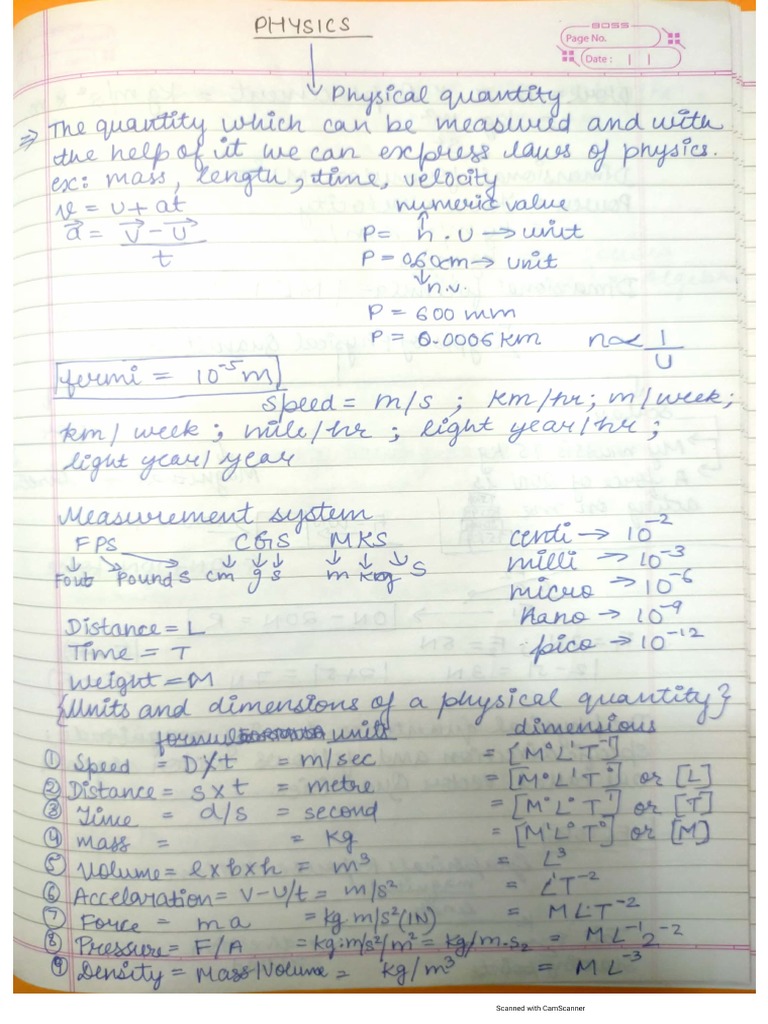 PHYSICS
BOSS
Page No.
Date :
Physical quantity
⇒ The quantity which can be measured and with
the help of it we can express laws of physics.
ex: mass, length, time, velocity
v = u + at
numeric value
a⃗ = v⃗ - u⃗ / t
P = n . U → unit
P = 0.60cm → unit
n.v.
P = 600 mm
P = 0.0006 km
n ∝ 1/U
fermi = 10⁻⁵ m
Speed = m/s ; km/hr ; m/week ;
km/ week ; mile/hr ; light year/hr ;
light year/year
Measurement system
FPS CGS MKS
Foot Pound S cm g s m kg S
centi → 10⁻²
milli → 10⁻³
micro → 10⁻⁶
nano → 10⁻⁹
pico → 10⁻¹²
Distance = L
Time = T
Weight = M
{Units and dimensions of a physical quantity}
units dimensions
① Speed = D/t = m/sec = [M⁰ L¹ T⁻¹]
② Distance = s x t = metre = [M⁰ L¹ T⁰] or [L]
③ Time = d/s = second = [M⁰ L⁰ T¹] or [T]
④ mass = = Kg = [M¹ L⁰ T⁰] or [M]
⑤ Volume = l x b x h = m³ = L³
⑥ Accelaration = V-U/t = m/s² = L¹T⁻²
⑦ Force = ma = kg m/s² (1N) = ML¹T⁻²
⑧ Pressure = F/A = kg.m/s²/m² = kg/m.s₂ = ML⁻¹2⁻²
⑨ Density = Mass/Volume = kg/m³ = ML⁻³
Scanned with CamScanner